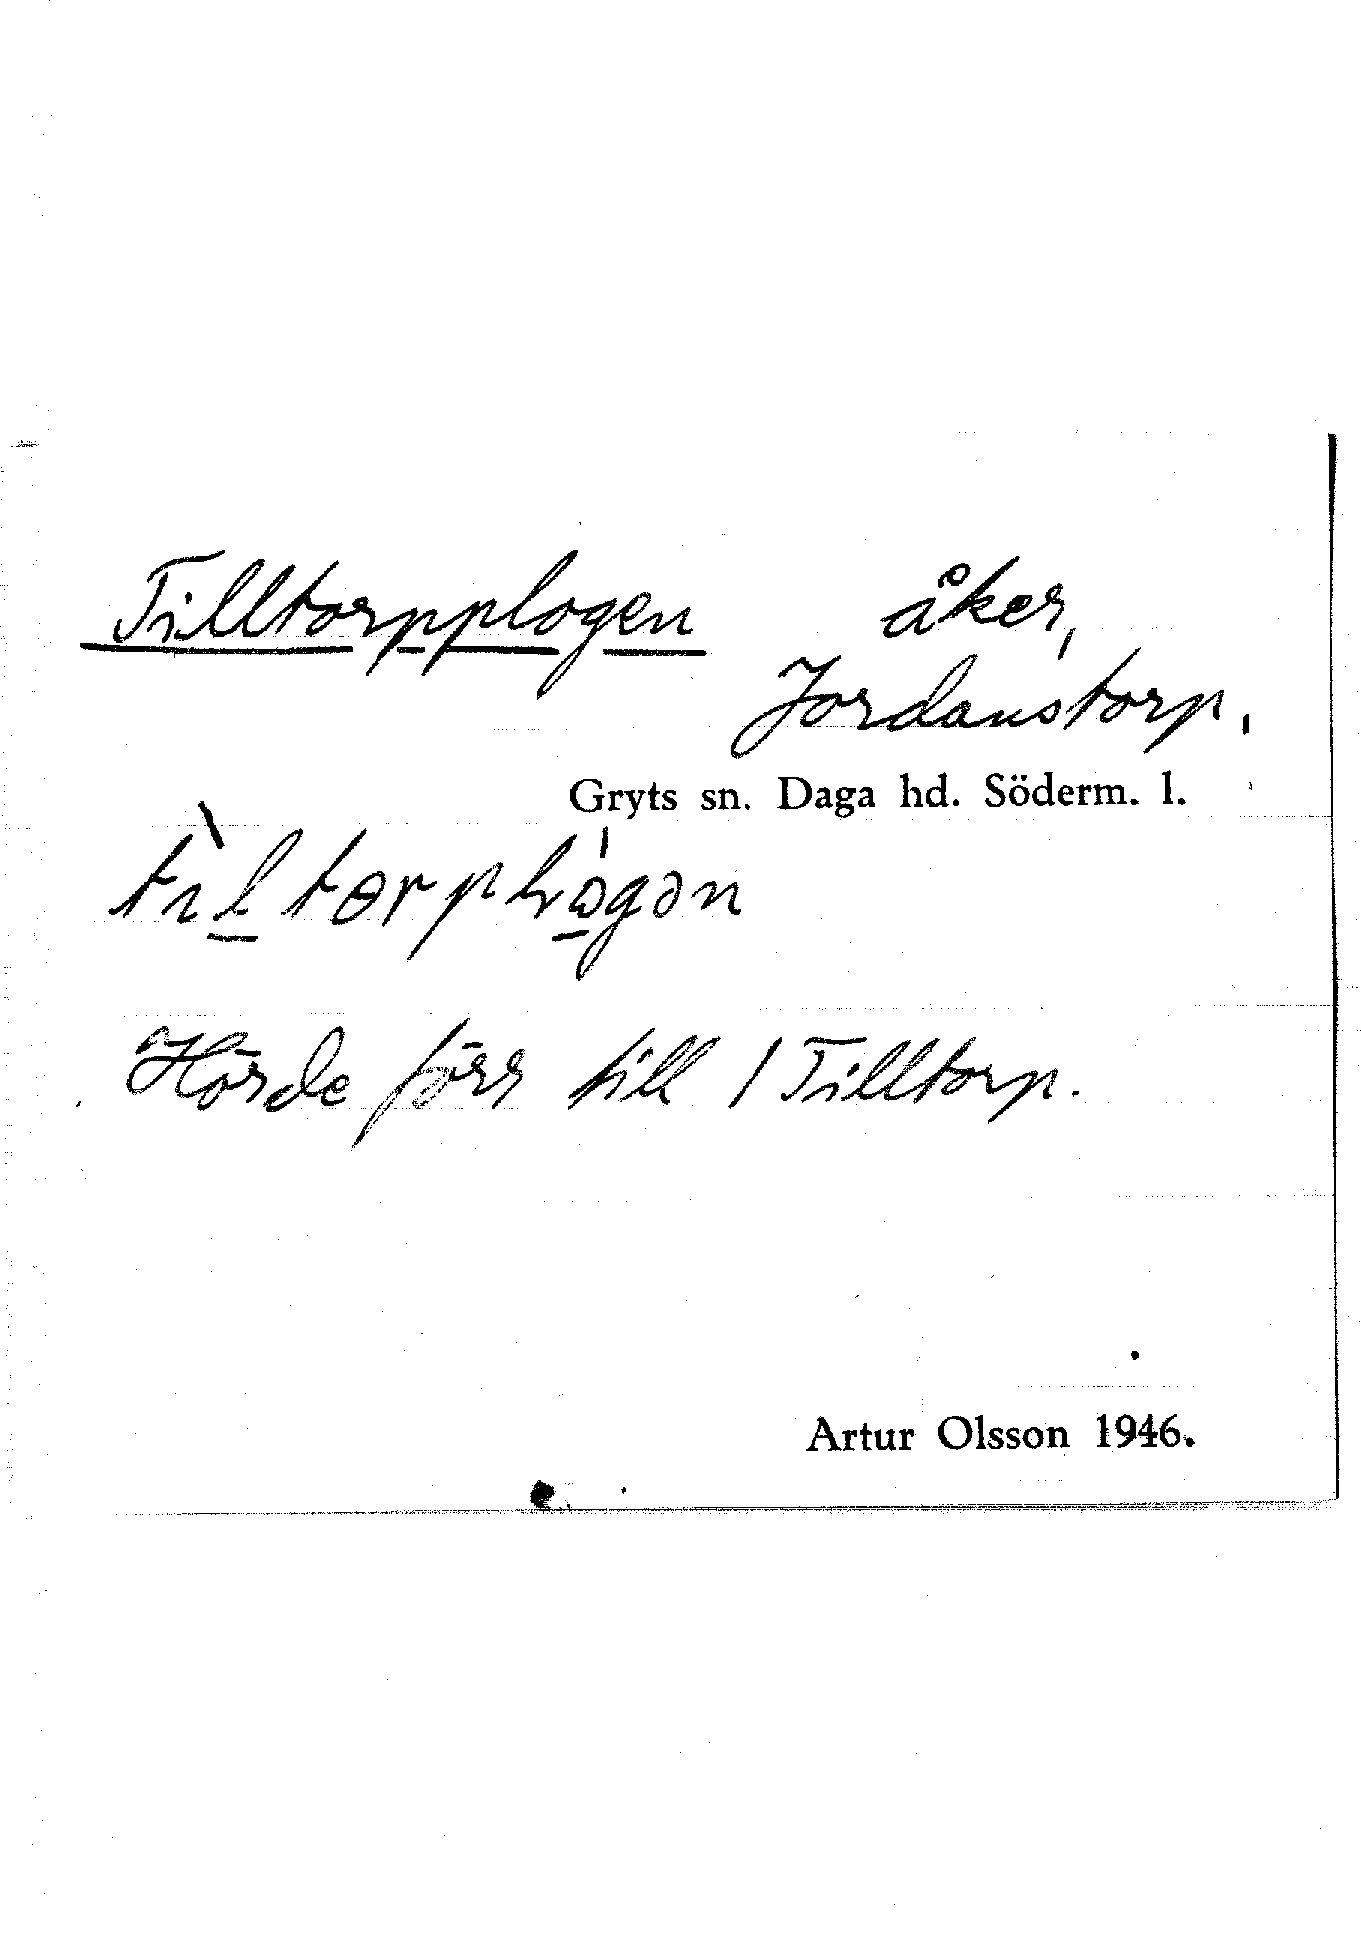 Tilltorpplogen åker,
Jordanstorp.
Gryts sn. Daga hd. Söderm. l.
Hörde förr till / Tilltorp.
Artur Olsson 1946.